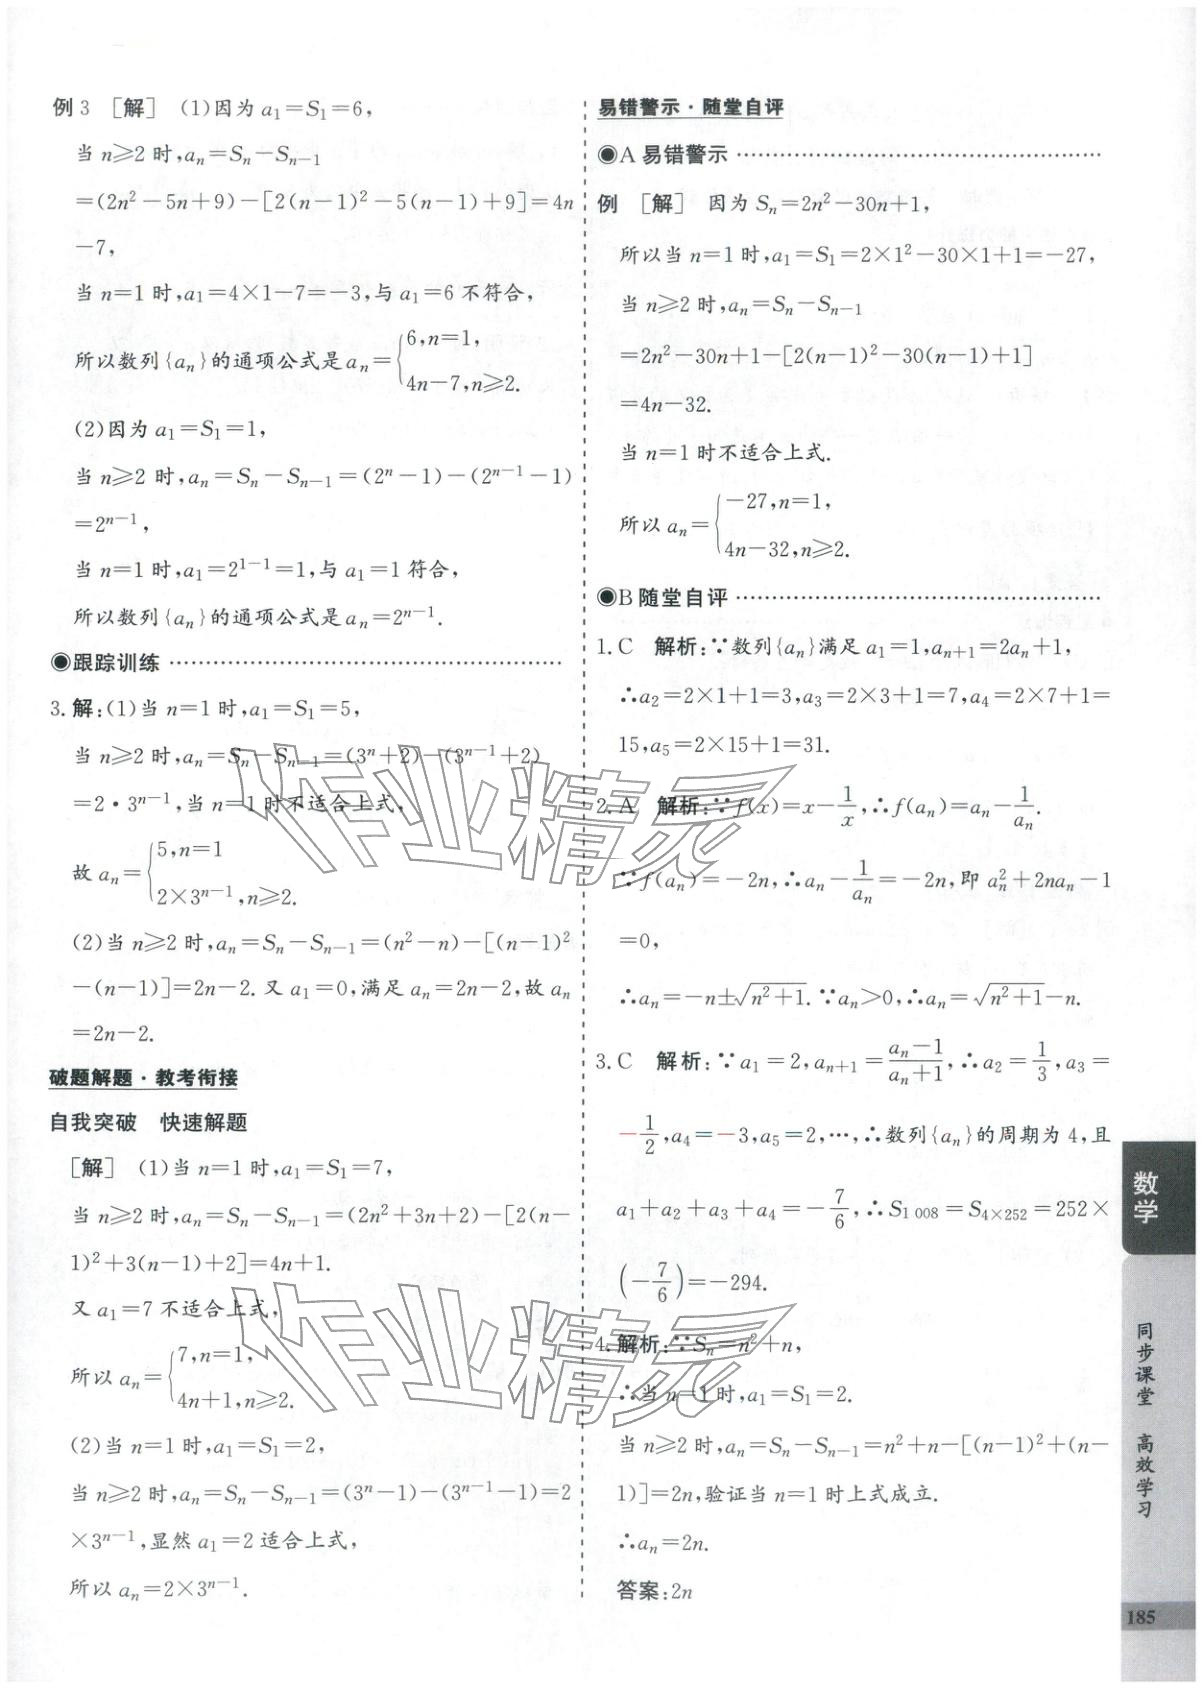 例 3 [解] (1)因为 a₁=S₁=6,
当 n≥2 时,aₙ=Sₙ-Sₙ₋₁
=(2n²-5n+9)-[2(n-1)²-5(n-1)+9]=4n
-7,
当 n=1 时,a₁=4×1-7=-3,与 a₁=6 不符合,
所以数列{aₙ}的通项公式是 aₙ={6,n=1,
4n-7,n≥2.
(2)因为 a₁=S₁=1,
当 n≥2 时,aₙ=Sₙ-Sₙ₋₁=(2ⁿ-1)-(2ⁿ⁻¹-1)
=2ⁿ⁻¹,
当 n=1 时,a₁=2¹⁻¹=1,与 a₁=1 符合,
所以数列{aₙ}的通项公式是 aₙ=2ⁿ⁻¹.
◉跟踪训练
3. 解:(1)当 n=1 时,a₁=S₁=5,
当 n≥2 时,aₙ=Sₙ-Sₙ₋₁=(3ⁿ+2)-(3ⁿ⁻¹+2)
=2·3ⁿ⁻¹,当 n=1 时不适合上式,
故 aₙ={5,n=1
2×3ⁿ⁻¹,n≥2.
(2)当 n≥2 时,aₙ=Sₙ-Sₙ₋₁=(n²-n)-[(n-1)²
-(n-1)]=2n-2. 又 a₁=0,满足 aₙ=2n-2,故 aₙ
=2n-2.
破题解题·教考衔接
自我突破 快速解题
[解] (1)当 n=1 时,a₁=S₁=7,
当 n≥2 时,aₙ=Sₙ-Sₙ₋₁=(2n²+3n+2)-[2(n-
1)²+3(n-1)+2]=4n+1.
又 a₁=7 不适合上式,
所以 aₙ={7,n=1,
4n+1,n≥2.
(2)当 n=1 时,a₁=S₁=2,
当 n≥2 时,aₙ=Sₙ-Sₙ₋₁=(3ⁿ-1)-(3ⁿ⁻¹-1)=2
×3ⁿ⁻¹,显然 a₁=2 适合上式,
所以 aₙ=2×3ⁿ⁻¹.
易错警示·随堂自评
◉A 易错警示
例 [解] 因为 Sₙ=2n²-30n+1,
所以当 n=1 时,a₁=S₁=2×1²-30×1+1=-27,
当 n≥2 时,aₙ=Sₙ-Sₙ₋₁
=2n²-30n+1-[2(n-1)²-30(n-1)+1]
=4n-32.
当 n=1 时不适合上式.
所以 aₙ={-27,n=1,
4n-32,n≥2.
◉B 随堂自评
1. C 解析:∵数列{aₙ}满足 a₁=1,aₙ₊₁=2aₙ+1,
∴a₂=2×1+1=3,a₃=2×3+1=7,a₄=2×7+1=
15,a₅=2×15+1=31.
2. A 解析:∵f(x)=x-1/x,∴f(aₙ)=aₙ-1/aₙ.
∵f(aₙ)=-2n,∴aₙ-1/aₙ=-2n,即 aₙ²+2naₙ-1
=0,
∴aₙ=-n±√(n²+1). ∵aₙ>0,∴aₙ=√(n²+1)-n.
3. C 解析:∵a₁=2,aₙ₊₁=(aₙ-1)/(aₙ+1),∴a₂=1/3,a₃=
-1/2,a₄=-3,a₅=2,…,∴数列{aₙ}的周期为 4,且
a₁+a₂+a₃+a₄=-7/6,∴S₁ ₀₀₈=S₄×₂₅₂=252×
(-7/6)=-294.
4. 解析:∵Sₙ=n²+n,
∴当 n=1 时,a₁=S₁=2.
当 n≥2 时,aₙ=Sₙ-Sₙ₋₁=n²+n-[(n-1)²+(n-
1)]=2n,验证当 n=1 时上式成立.
∴aₙ=2n.
答案:2n
数学
同步课堂 高效学习
185
作业精灵
作业精灵